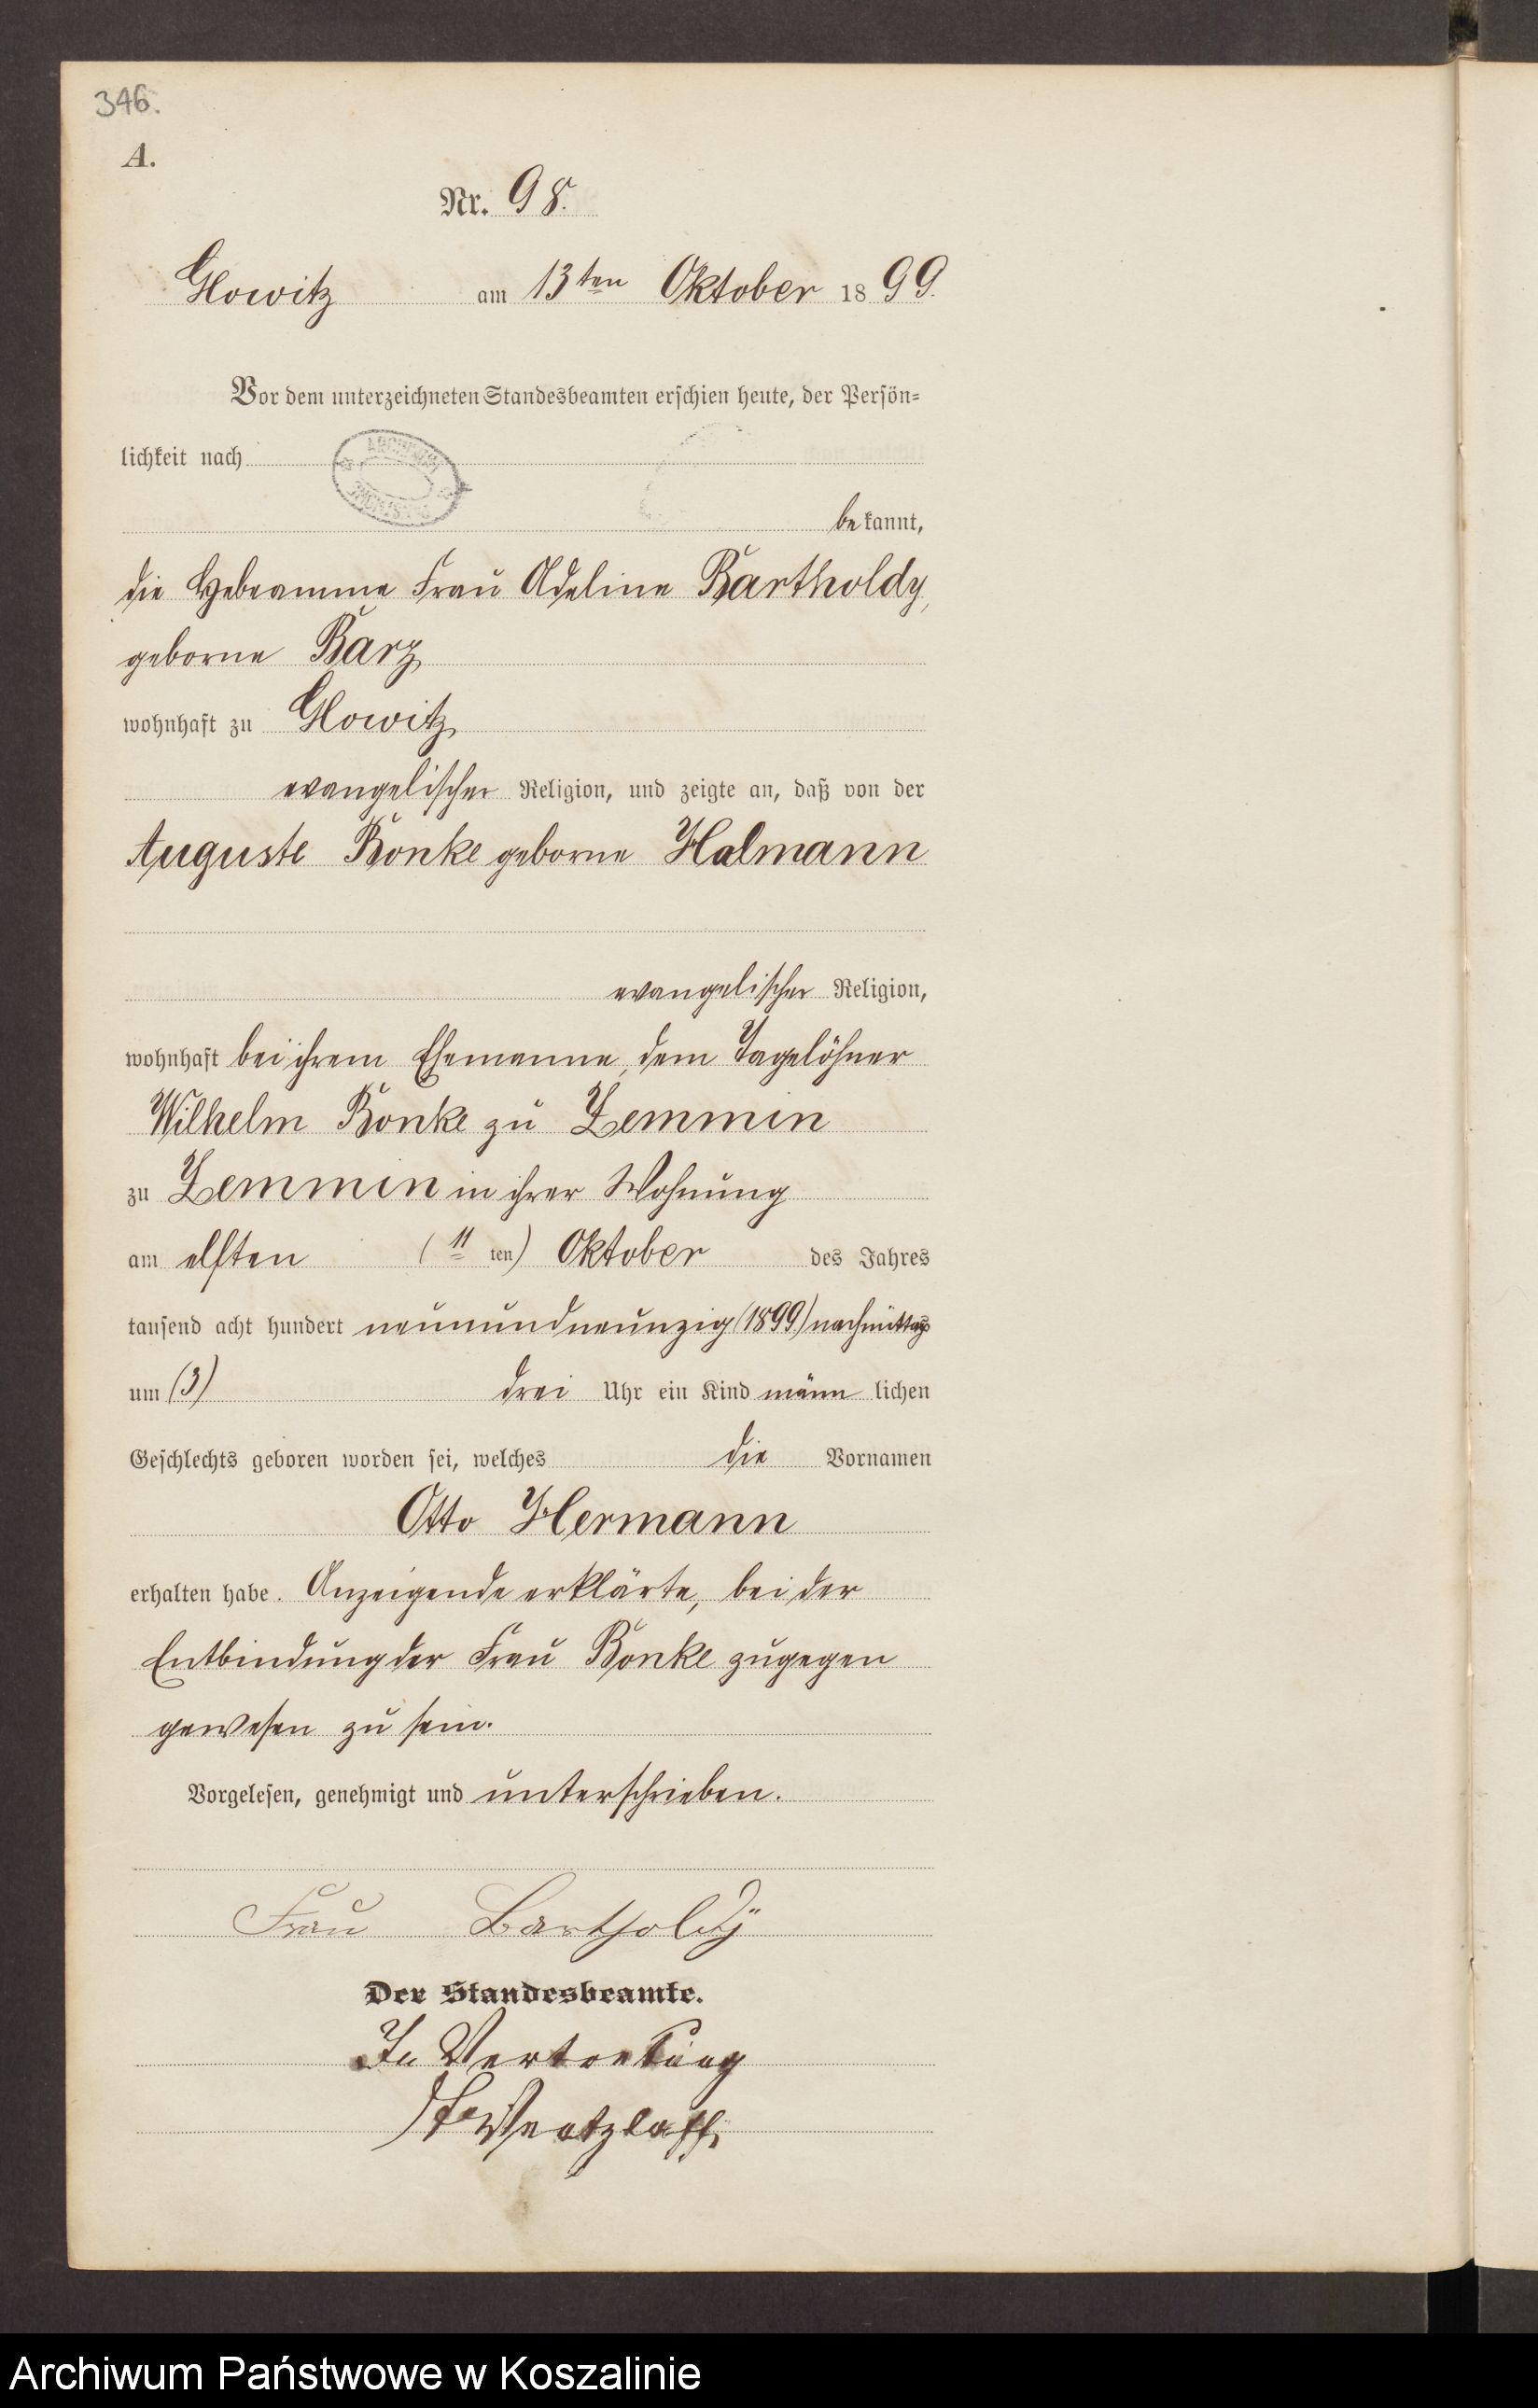 346.
A.
Nr. 98.
Glowitz am 13ten Oktober 1899.
Vor dem unterzeichneten Standesbeamten erschien heute, der Persön-
lichkeit nach
bekannt,
die Hebeamme Frau Adeline Bartholdy,
geborne Barz
wohnhaft zu Glowitz,
evangelischer Religion, und zeigte an, daß von der
Auguste Bonke geborne Halmann
evangelischer Religion,
wohnhaft bei ihrem Ehemanne, dem Tagelöhner
Wilhelm Bonke zu Zemmin
zu Zemmin in ihrer Wohnung
am elften (11ten) Oktober des Jahres
tausend acht hundert neunundneunzig (1899) nachmittags
um (3) drei Uhr ein Kind männlichen
Geschlechts geboren worden sei, welches die Vornamen
Otto Hermann
erhalten habe. Anzeigende erklärte, bei der
Entbindung der Frau Bonke zugegen
gewesen zu sein.
Vorgelesen, genehmigt und unterschrieben.
Frau Bartholdÿ
Der Standesbeamte.
In Vertretung
Wentzlaff
Archiwum Państwowe w Koszalinie